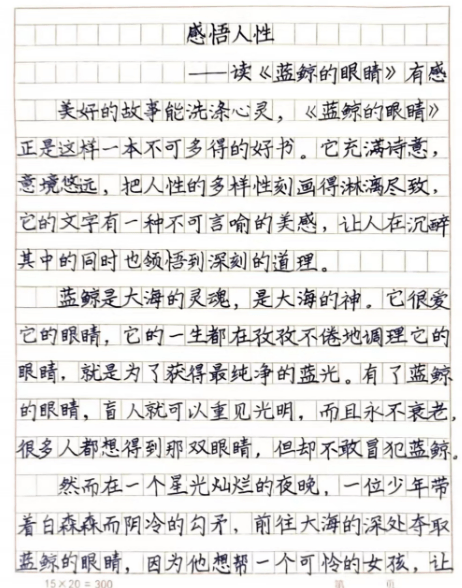 感悟人性
——读《蓝鲸的眼睛》有感
美好的故事能洗涤心灵，《蓝鲸的眼睛》
正是这样一本不可多得的好书。它充满诗意，
意境悠远，把人性的多样性刻画得淋漓尽致，
它的文字有一种不可言喻的美感，让人在沉醉
其中的同时也领悟到深刻的道理。
蓝鲸是大海的灵魂，是大海的神。它很爱
它的眼睛，它的一生都在孜孜不倦地调理它的
眼睛，就是为了获得最纯净的蓝光。有了蓝鲸
的眼睛，盲人就可以重见光明，而且永不衰老，
很多人都想得到那双眼睛，但却不敢冒犯蓝鲸。
然而在一个星光灿烂的夜晚，一位少年带
着白森森而阴冷的勾矛，前往大海的深处夺取
蓝鲸的眼睛，因为他想帮一个可怜的女孩，让
15×20=300 第 页